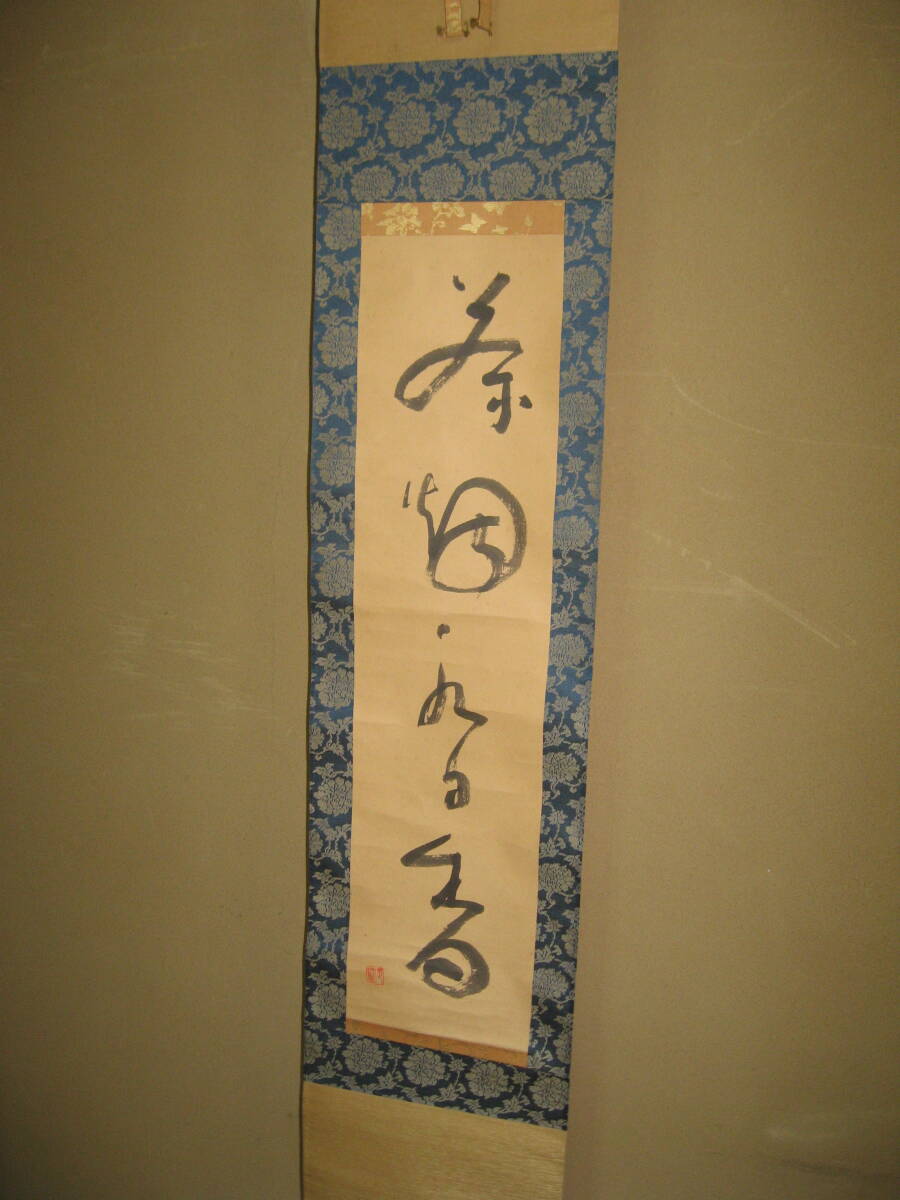 茶烟永日香